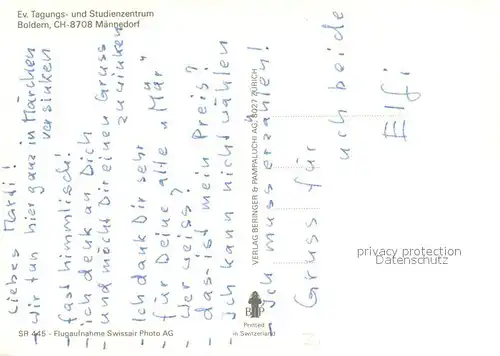 Ev. Tagungs- und Studienzentrum
Boldern, CH-8708 Männedorf
Liebes Marti!
- wir tun hier ganz in Märchen
versinken
- fast himmlisch.
ich denk an Dich
- und möcht Dir einen Gruss
zuwinken
- Ich dank Dir sehr
- für Deine alte "Mär"
- Wer weiss?
- das ist mein Preis?
- Ich kann nicht wählen
- Ich muss erzählen!
Gruss für
uch beide
Elfi
VERLAG BERINGER & PAMPALUCHI AG, 8027 ZÜRICH
privacy protection
Datenschutz
SR 445 - Flugaufnahme Swissair Photo AG
BP
Printed
in Switzerland